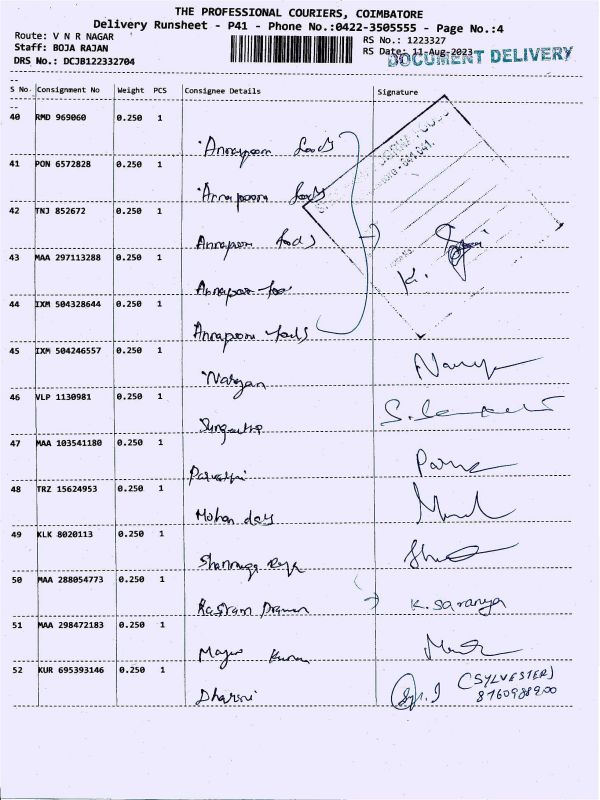 THE PROFESSIONAL COURIERS, COIMBATORE
Delivery Runsheet - P41 - Phone No.:0422-3505555 - Page No.:4
Route: V N R NAGAR
RS No.: 1223327
Staff: BOJA RAJAN
RS Date: 11-Aug-2023
DOCUMENT DELIVERY
DRS No.: DCJB122332704
S No. Consignment No Weight PCS Consignee Details Signature
40 RMD 969060 0.250 1
Annapoorn foods
41 PON 6572828 0.250 1
Annapoorna foods
42 TNJ 852672 0.250 1
Annapoorn foods
43 MAA 297113288 0.250 1
Annapoor foo
44 IXM 504328644 0.250 1
Annapoorn foods
45 IXM 504246557 0.250 1
Narayan
46 VLP 1130981 0.250 1
47 MAA 103541180 0.250 1
48 TRZ 15624953 0.250 1
Mohan das
49 KLK 8020113 0.250 1
50 MAA 288054773 0.250 1
K. Saranya
51 MAA 298472183 0.250 1
52 KUR 695393146 0.250 1
Dharsni (SYLVESTER)